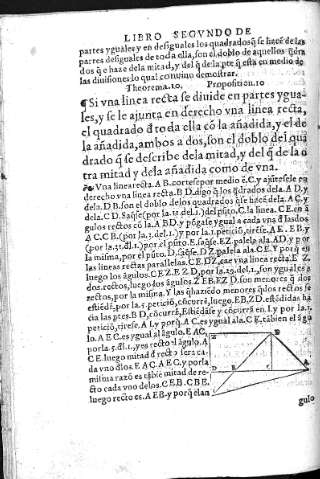 LIBRO SEGVNDO DE
partes yguales y en desiguales los quadrados q̃ se hacẽ de las
partes desiguales de toda ella, son el doblo de aquellos
dos q̃ se haze dela mitad, y del q̃ dela pte q̃ esta en medio de
las diuisiones lo qual conuino demostrar.
Theorema.10. Proposition.10
¶ Si vna linea recta se diuide en partes ygua-
les, y se le ajunta en derecho vna linea recta,
el quadrado đ toda ella cõ la añadida, y el de
la añadida, ambos a dos, son el doblo del qua
drado q̃ se describe dela mitad, y del q̃ de la o
tra mitad y dela añadida como de vna.
Vna linea recta. A B. cortese por medio ẽ.C. y
derecho vna linea recta B D. digo q̃ los q̃drados dela. A D, y
dela. D B. son el doblo delos quadrados que se hacẽ dela. A C, y
dela. C D. del pũto. C. la linea. C E. en
gulos rectos cõ la. A B D, y põgase ygual a cada vna
C. C B. (por la.3. del.1.) y por la.1. peticiõ, tirẽse. A E. E B. y
(por la.31. đl.1.) por el pũto. E. saq̃se. E Z. palela ala. A D. y por
la misma, por el pũto. D. saq̃se. D Z. palela ala. C E. Y porq̃ en
las lineas rectas parallelas. C E. D Z, cae vna linea recta. E Z
luego los ãgulos. C E Z. E Z D, por la.29. del.1. son yguales a
dos rectos, luego dos ãgulos Z E B. E Z D. son menores q̃ dos
rectos, por la misma. Y las menores q̃ dos rectos se
por la.5. peticiõ, cõcurrẽ, luego. E B, Z D. estẽdidas ha
cia las ptes. B D, cõcurrirã, Estiẽdãse y cõcurrã en. I. y por la.1.
peticiõ, tirese. A I, y porq̃. A C. es ygual ala. C E. tãbien el ãgu
lo. A E C. es ygual al ãgulo. E A C,
por la.5. đl.1. y es recto el ãgulo. A
C E. luego mitad đ recto sera ca
da vno đlos. E A C. A E C. y porla
misma razõ es tãbiẽ mitad de re-
cto cada vno delos. C E B. C B E,
luego recto es. A E B. y porq̃
E
D B C A
I
gulo